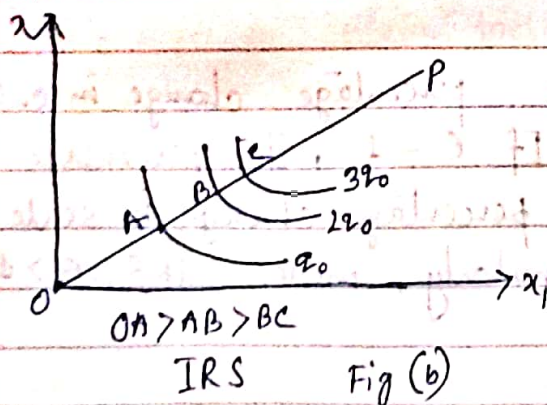 x
P
C
3q₀
B
2q₀
A
q₀
O
x₁
OA > AB > BC
IRS
Fig (b)